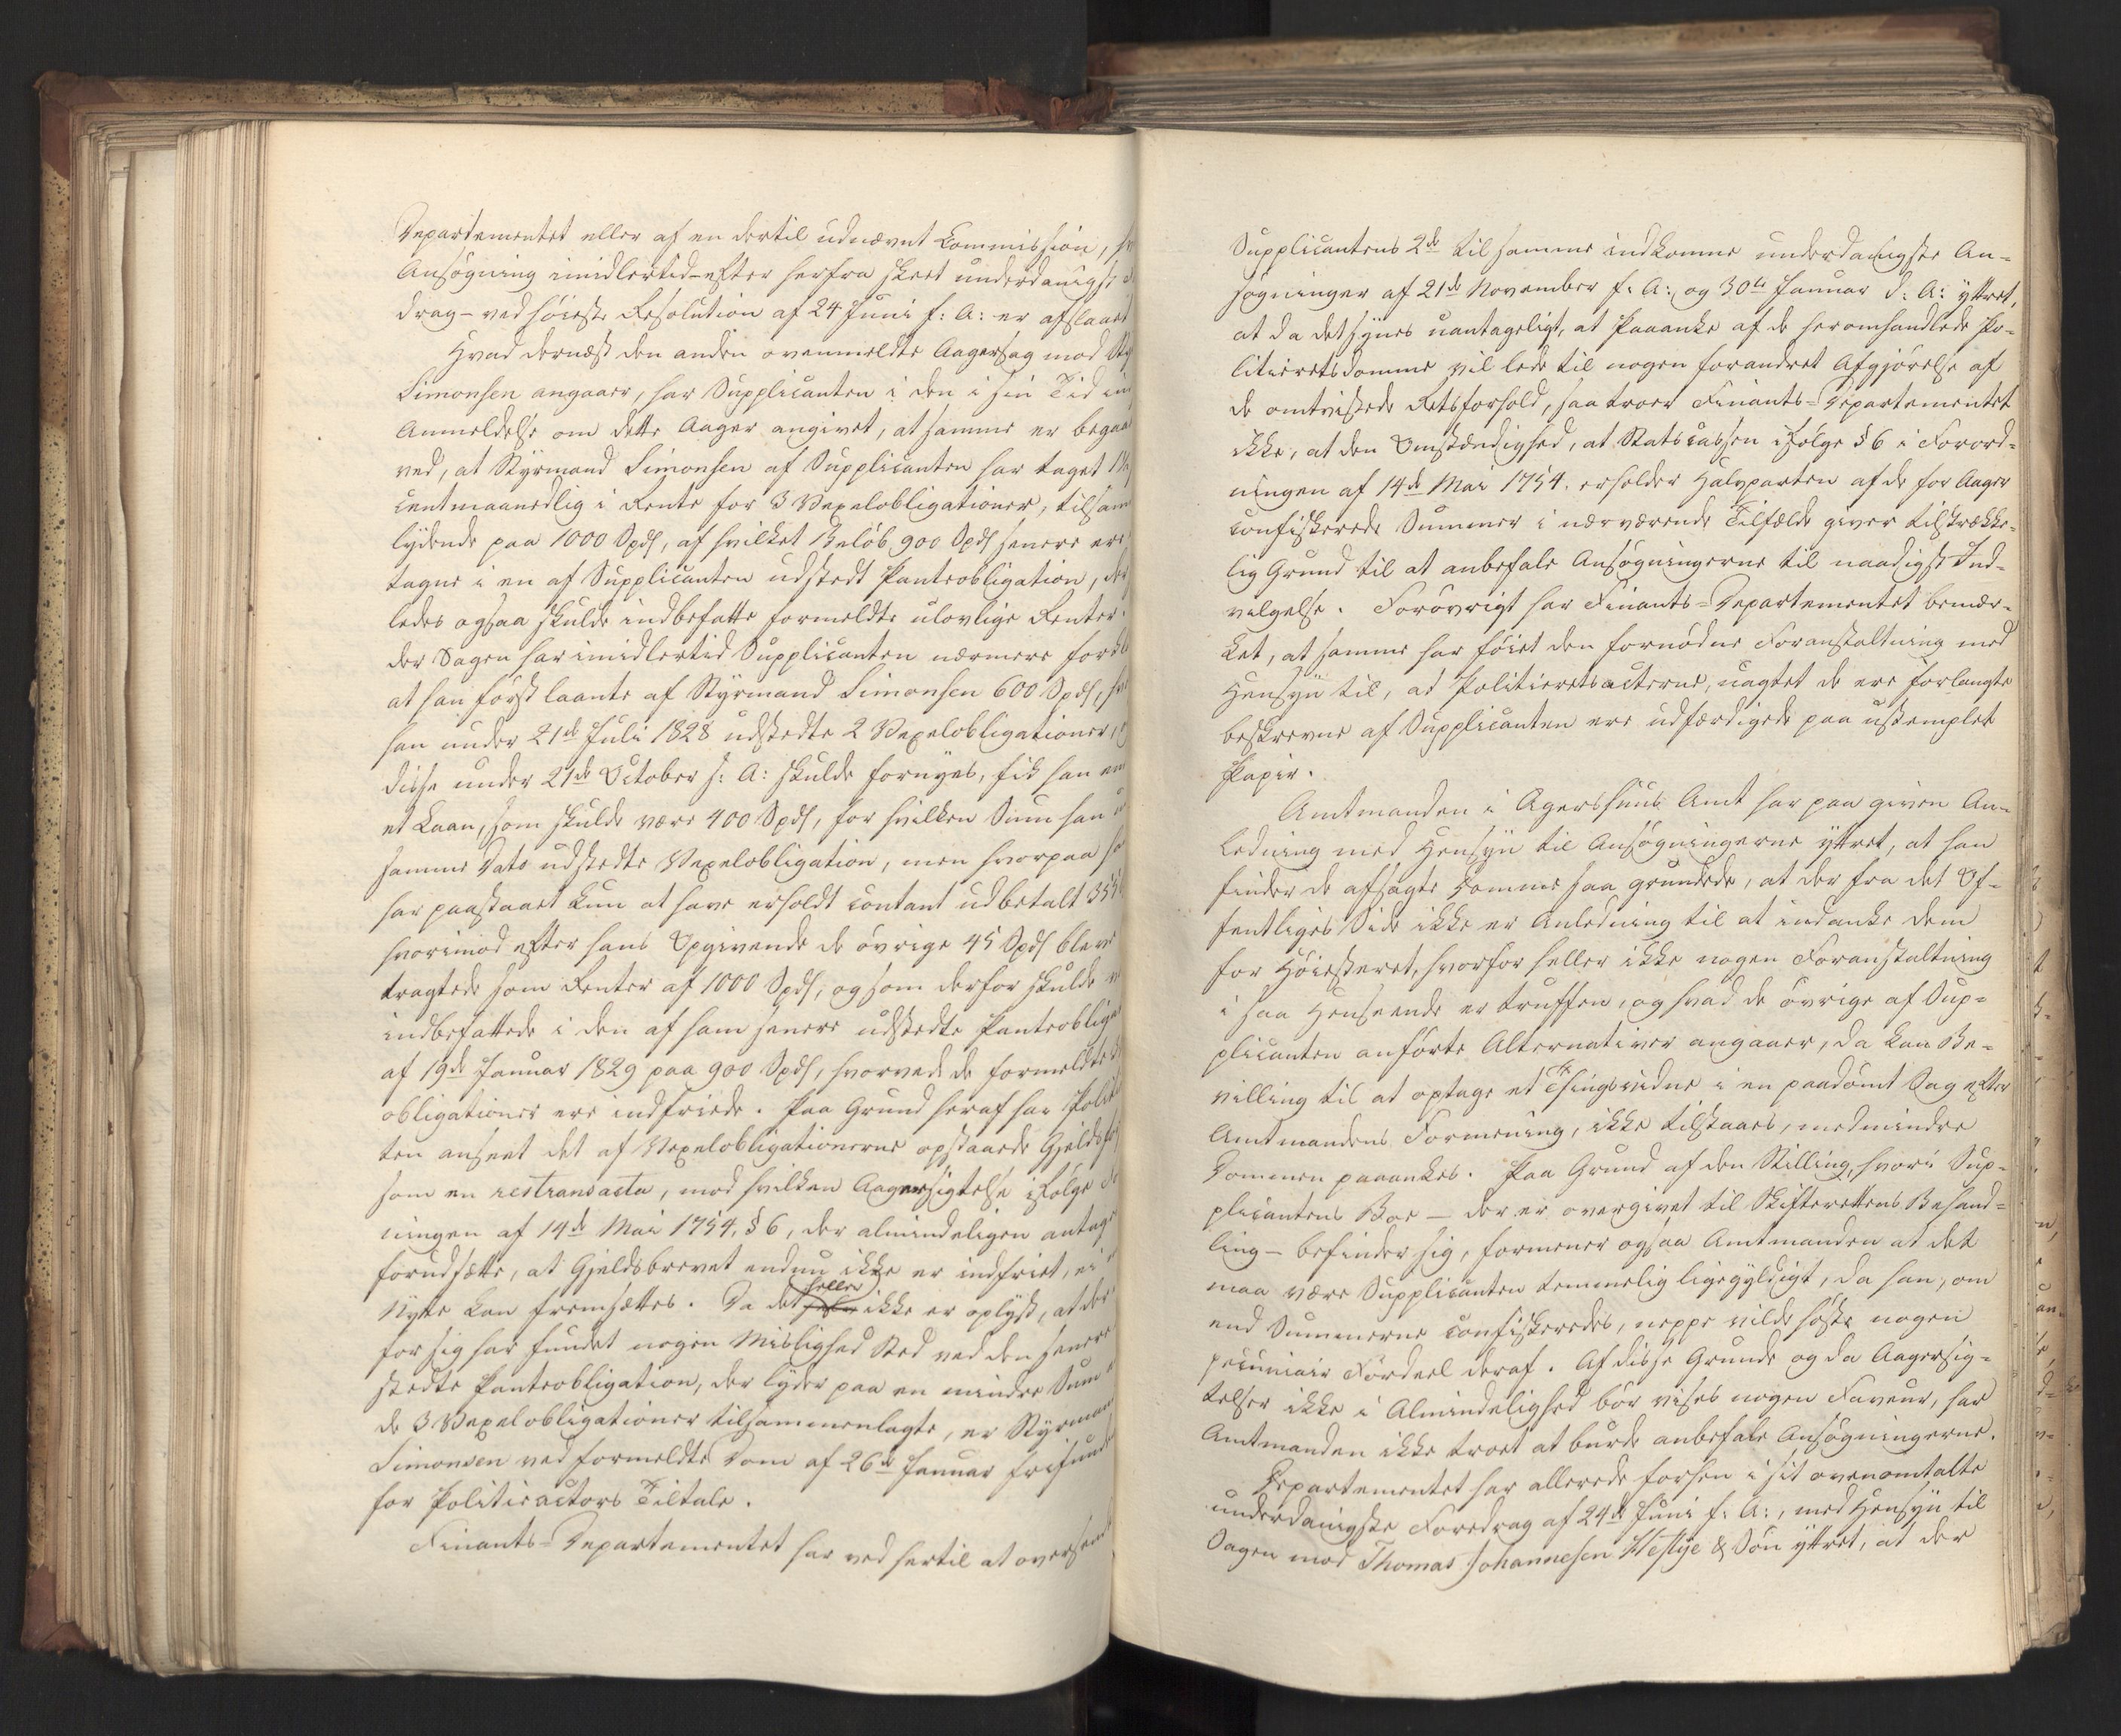 Departementet eller af en dertil udnævnt Commission,
Ansøgning imidlertid – efter herfra skeet underdanigst
drag – ved høieste Resolution af 24 Juni f: A: er afslaaet
Hvad dernæst den anden ovenmeldte Aagersag mod
Simonsen angaaer, har Supplicanten i den i sin Tid
Anmeldelse om dette Aager angivet, at samme er
ved, at Styrmand Simonsen af Supplicanten har taget
centmaanedlig i Rente for 3 Vexelobligationer,
lydende paa 1000 Spd, af hvilket Beløb 900 Spd senere ere
tagne i en af Supplicanten udstedt Panteobligation,
ledes ogsaa skulde indbefatte formeldte ulovlige Renter.
der Sagen har imidlertid Supplicanten nærmere
at han først laante af Styrmand Simonsen 600 Spd,
han under 21de Juli 1828 udstedte 2 Vexelobligationer,
disse under 21de October s: A: skulde fornyes, fik han
et Laan, som skulde være 400 Spd, for hvilken Sum han
samme Dato udstedte Vexelobligation, men hvorpaa
har paastaaet kun at have erholdt contant udbetalt
hvorimod efter hans Opgivende de øvrige 45 Spd bleve
tragtede som Renter af 1000 Spd, og som derfor skulde
indbefattede i den af ham senere udstedte
af 19de Januar 1829 paa 900 Spd, hvorved de formeldte
obligationer ere indfriede. Paa Grund heraf har
ten anseet det af Vexelobligationerne opstaaede
som en res transacta, mod hvilken Aagersigtelse ifølge
ningen af 14de Mai 1754, § 6, der almindeligen
forudsætte, at Gjeldsbrevet endnu ikke er indfriet, ei
Nytte kan fremsættes. Da det heller ikke er oplyst, at der
for sig har fundet nogen Mislighed Sted ved den senere
stedte Panteobligation, der lyder paa en mindre Sum
de 3 Vexelobligationer tilsammenlagte, er
Simonsen ved formeldte Dom af 26de Januar
for Politieactors Tiltale.
Finants-Departementet har ved hertil at
Supplicantens 2de til samme indkomne underdanigste An-
søgninger af 21de November f: A:, og 30te Januar d: A: yttret,
at da det synes uantageligt, at Paaanke af de heromhandlede Po-
litieretsdomme vil lede til nogen forandret Afgjørelse af
de omtvistede Retsforhold, saa troer Finants-Departementet
ikke, at den Omstændighed, at Statscassen ifølge § 6 i Forord-
ningen af 14de Mai 1754. erholder Halvparten af de for Aager
confiskerede Summer i nærværende Tilfælde giver tilstrække-
lig Grund til at anbefale Ansøgningerne til naadigst Ind-
vilgelse. Forøvrigt har Finants-Departementet bemær-
ket, at samme har føiet den fornødne Foranstaltning med
Hensyn til, at Politieretsacterne, uagtet de ere forlangte
beskrevne af Supplicanten ere udfærdigede paa ustemplet
Papir.
Amtmanden i Agershuus Amt har paa given An-
ledning med Hensyn til Ansøgningerne yttret, at han
finder de afsagte Domme saa grundede, at der fra det Of-
fentliges Side ikke er Anledning til at indanke dem
for Høiesteret, hvorfor heller ikke nogen Foranstaltning
i saa Henseende er truffen, og hvad de øvrige af Sup-
plicanten anførte Alternativer angaaer, da kan Be-
villing til at optage et Thingsvidne i en paadømt Sag efter
Amtmandens Formening, ikke tilstaaes, medmindre
Dommen paaankes. Paa Grund af den Stilling, hvori Sup-
plicantens Boe – der er overgivet til Skifterettens Behand-
ling – befinder sig, formener ogsaa Amtmanden at det
maa være Supplicanten temmelig ligegyldigt, da han, om
end Summerne confiskeredes, neppe vilde høste nogen
pecuniair Fordeel deraf. Af disse Grunde og da Aagersig-
telser ikke i Almindelighed bør vises nogen Faveur, har
Amtmanden ikke troet at burde anbefale Ansøgningerne.
Departementet har allerede forhen i sit ovenomtalte
underdanigste Foredrag af 24de Juni f: A:, med Hensyn til
Sagen mod Thomas Johannesen Heftye & Søn yttret, at der